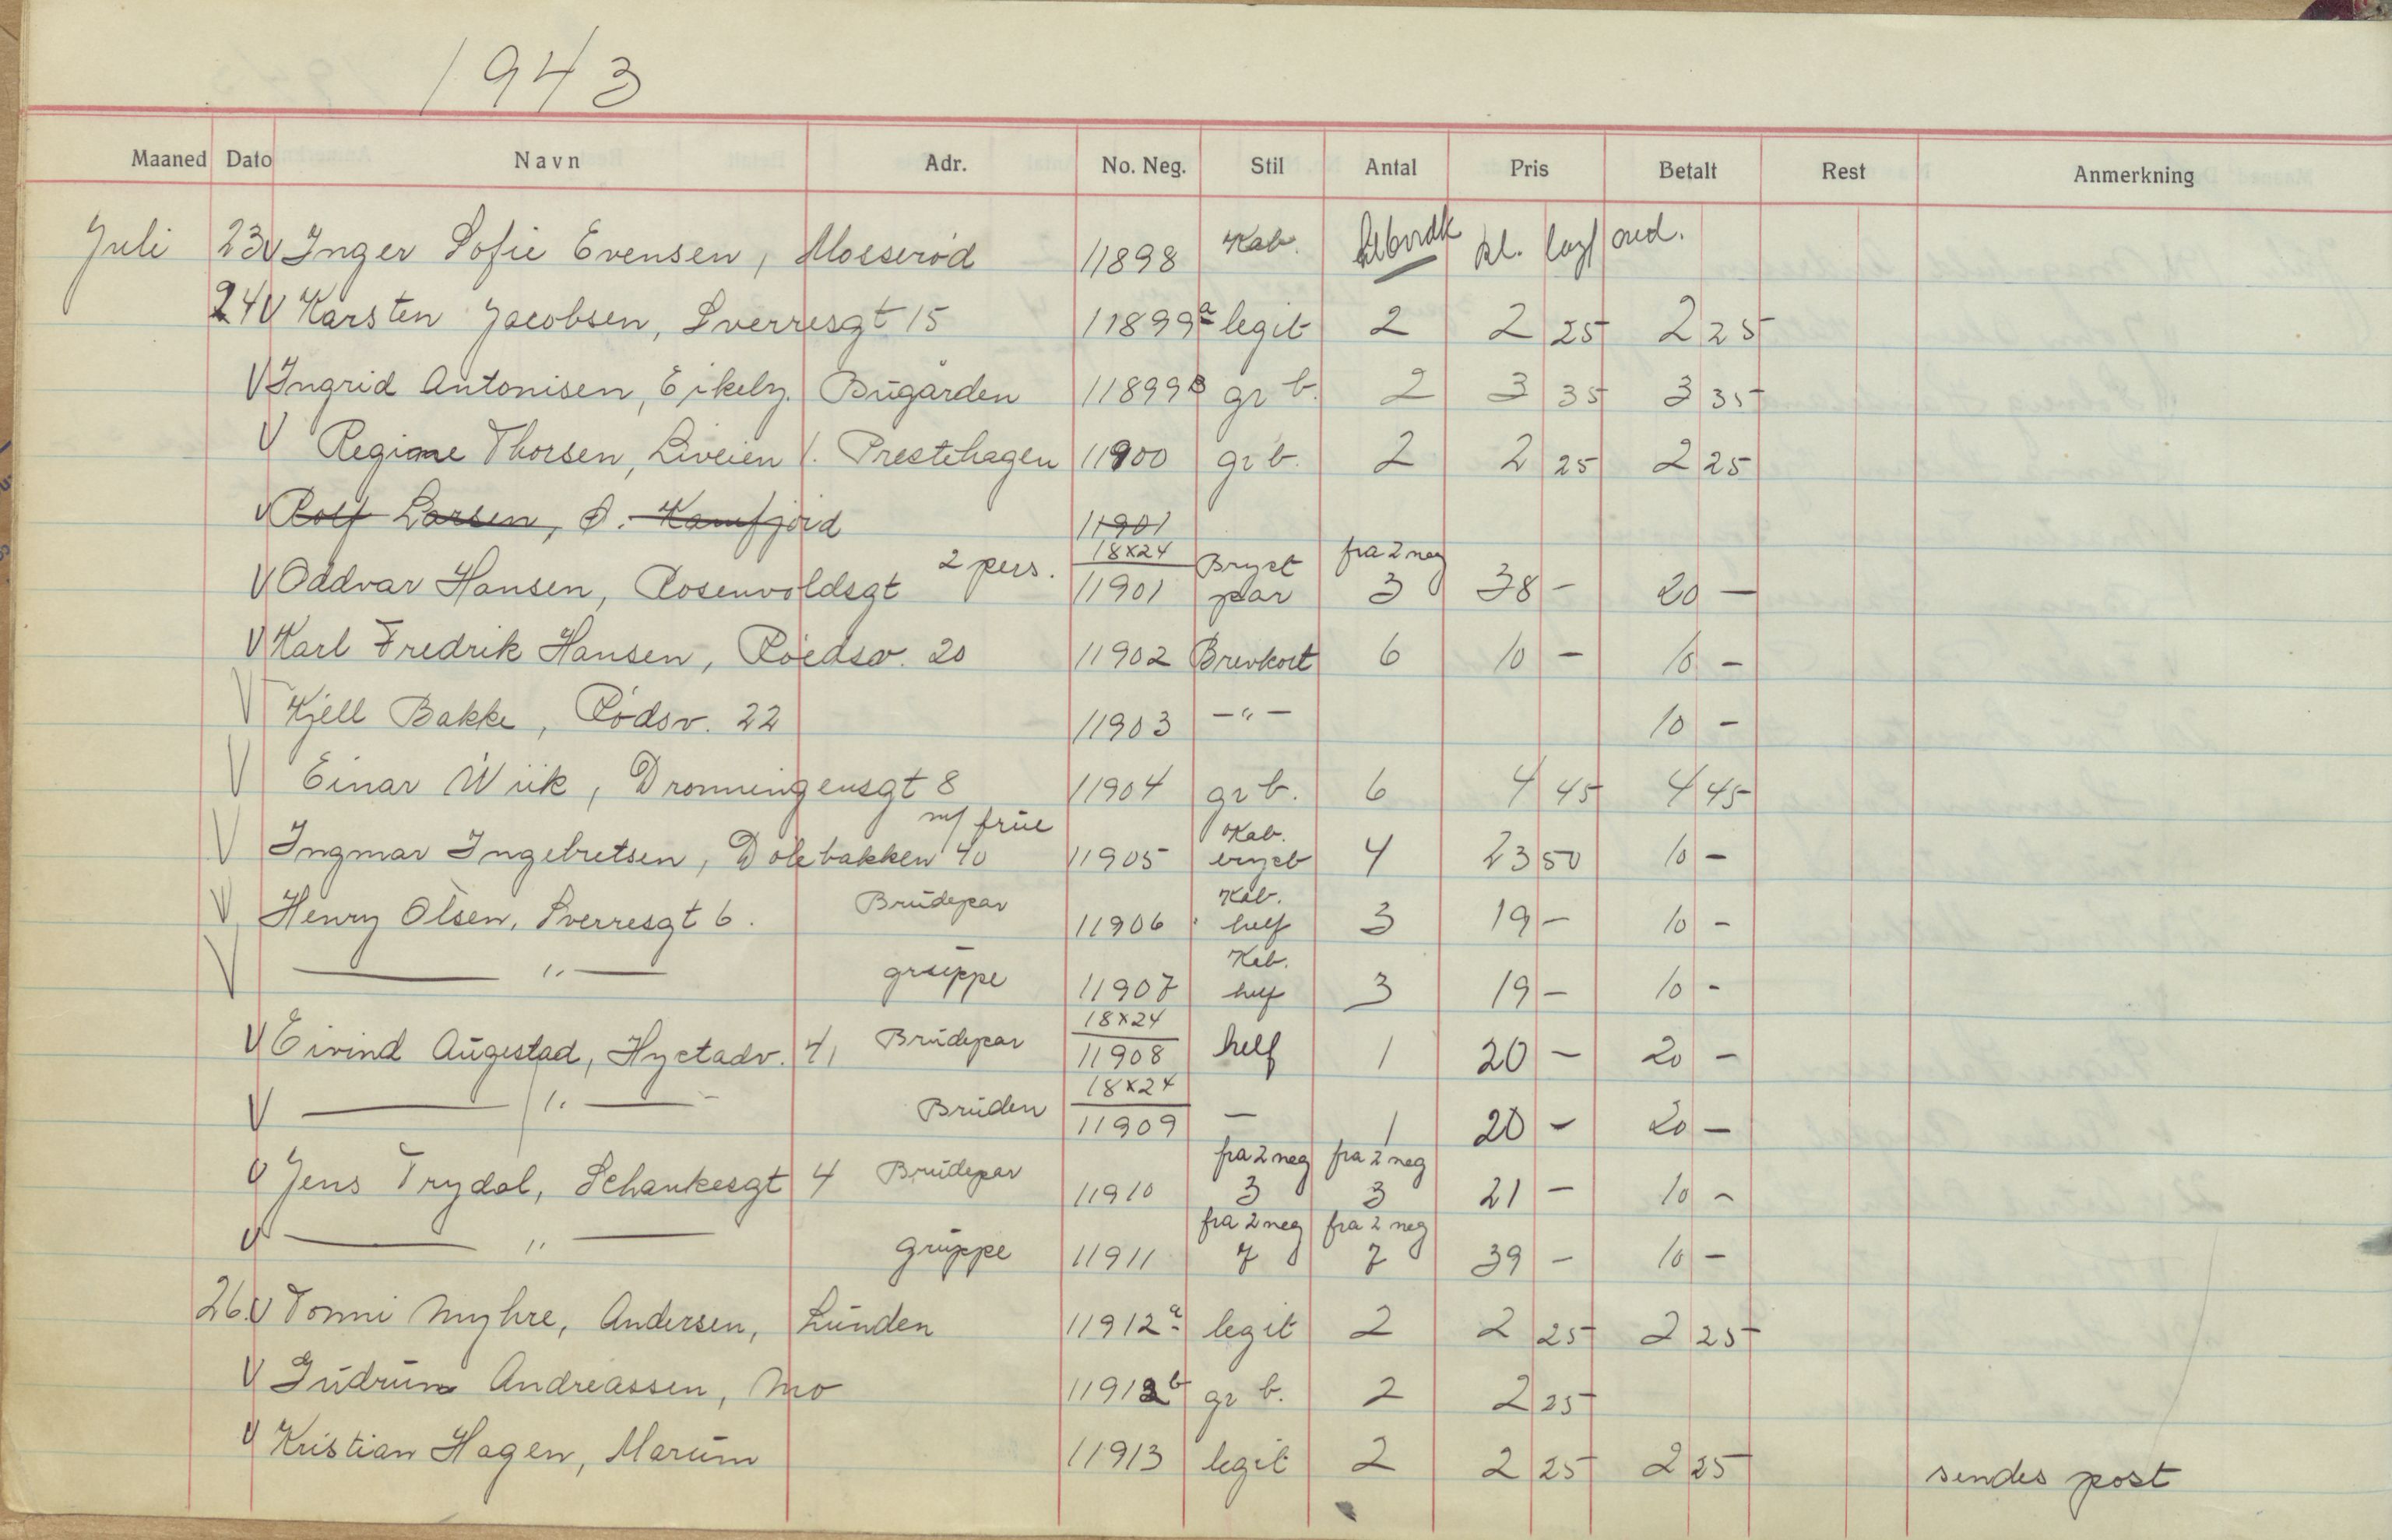 1943
Maaned Dato Navn Adr. No. Neg. Stil Antal Pris Betalt Rest Anmerkning
Juli 23 V Inger Sofie Evensen, Mosserød 11898 Kab.
24 V Karsten Jacobsen, Sverresgt 15 11899a legit 2 2 25 2 25
V Ingrid Antonisen, Eikely. Bugården 11899B gr b. 2 3 35 3 35
V Regine Thorsen, Liveien /. Prestehagen 11900 gr b. 2 2 25 2 25
V Rolf Larsen, Ø. Kamfjord 11901
V Oddvar Hansen, Rosenvoldsgt 2 pers. 18x24 11901 Bryst par fra 2 neg 3 38 - 20 -
V Karl Fredrik Hansen, Roedsv. 20 11902 Brevkort 6 10 - 10 -
V Kjell Bakke, Rødsv. 22 11903 -"- 10 -
V Einar Wiik, Dronningensgt 8 11904 gr b. 6 4 45 4 45
V Ingmar Ingebretsen, Dølebakken 40 m/ frue 11905 Kab. bryst 4 23 50 10 -
V Henry Olsen, Sverresgt 6. Brudepar 11906 Kab. helf 3 19 - 10 -
V — " — gruppe 11907 Kab. helf 3 19 - 10 -
V Eivind Augestad, Hystadv. 41 Brudepar 18x24 11908 helf 1 20 - 20 -
V — " — Bruden 18x24 11909 — 1 20 - 20 -
V Jens Trydal, Schankesgt 4 Brudepar 11910 fra 2 neg 3 fra 2 neg 3 21 - 10 -
V — " — gruppe 11911 fra 2 neg 7 fra 2 neg 7 39 - 10 -
26. V Tonni Myhre, Andersen, Lunden 11912a legit 2 2 25 2 25
V Gudrun Andreassen, Mo 11912b gr b. 2 2 25
V Kristian Hagen, Marum 11913 legit 2 2 25 2 25 sendes post